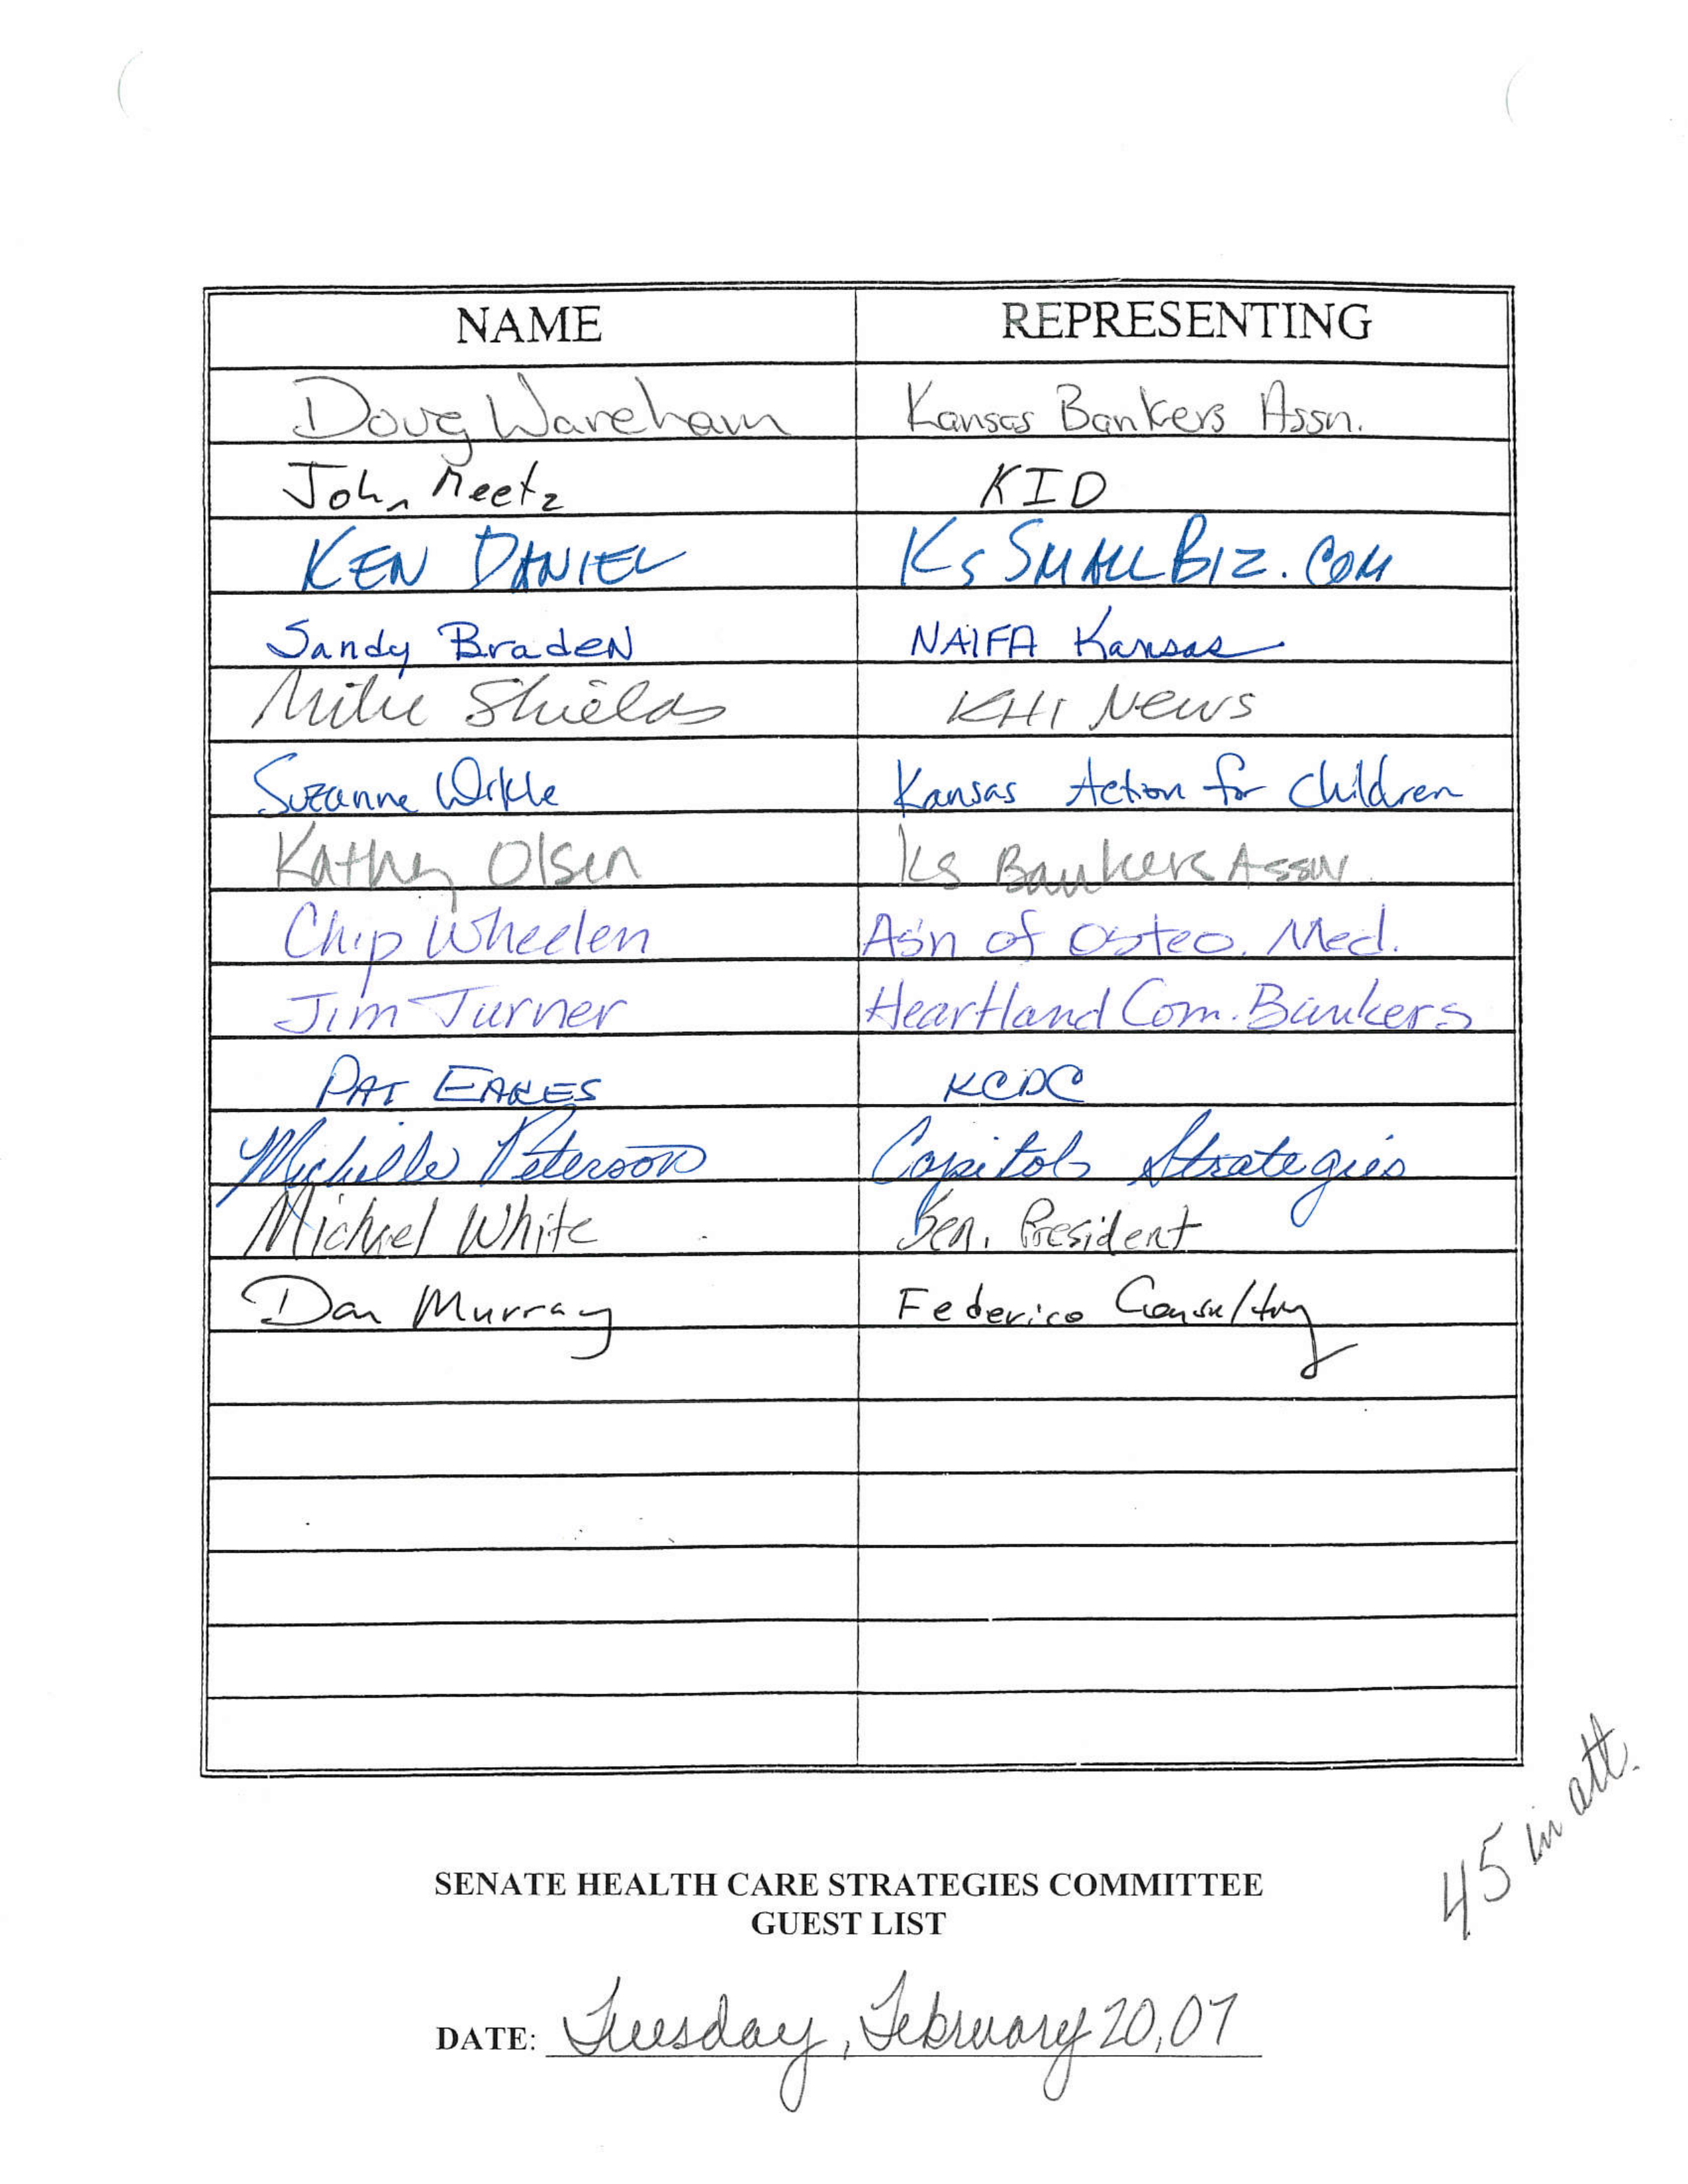 NAME REPRESENTING
Doug Wareham Kansas Bankers Assn.
John Meetz KID
KEN DANIEL KS SMALL BIZ. COM
Sandy Braden NAIFA Kansas
Mike Shields KHI News
Suzanne Wikle Kansas Action for Children
Kathy Olsen Ks Bankers Assn
Chip Wheelen Ass'n of Osteo. Med.
Jim Turner Heartland Com. Bankers
PAT EAKES KCDC
Michelle Peterson Capitol Strategies
Michael White Sen. President
Dan Murray Federico Consulting
45 in att.
SENATE HEALTH CARE STRATEGIES COMMITTEE
GUEST LIST
DATE: Tuesday, February 20, 07